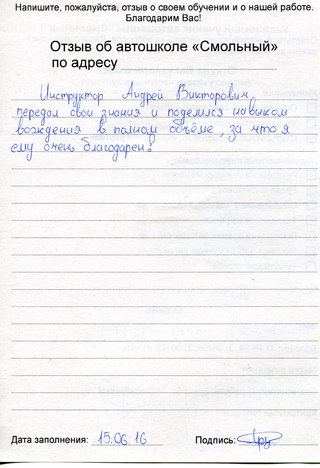 Напишите, пожалуйста, отзыв о своем обучении и о нашей работе.
Благодарим Вас!
Отзыв об автошколе «Смольный»
по адресу
Инструктор Андрей Викторович,
передал свои знания и поделился навыком
вождения в полном объёме, за что я
ему очень благодарен!
Дата заполнения: 15.06 16 Подпись: